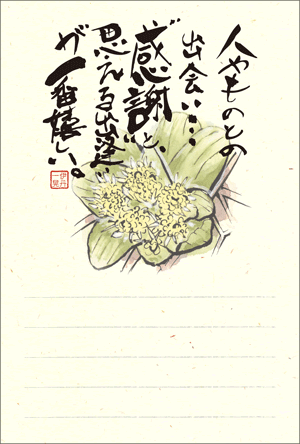 人やものとの
出会い…
“感謝”と、
思える出逢い
が一番嬉しい。